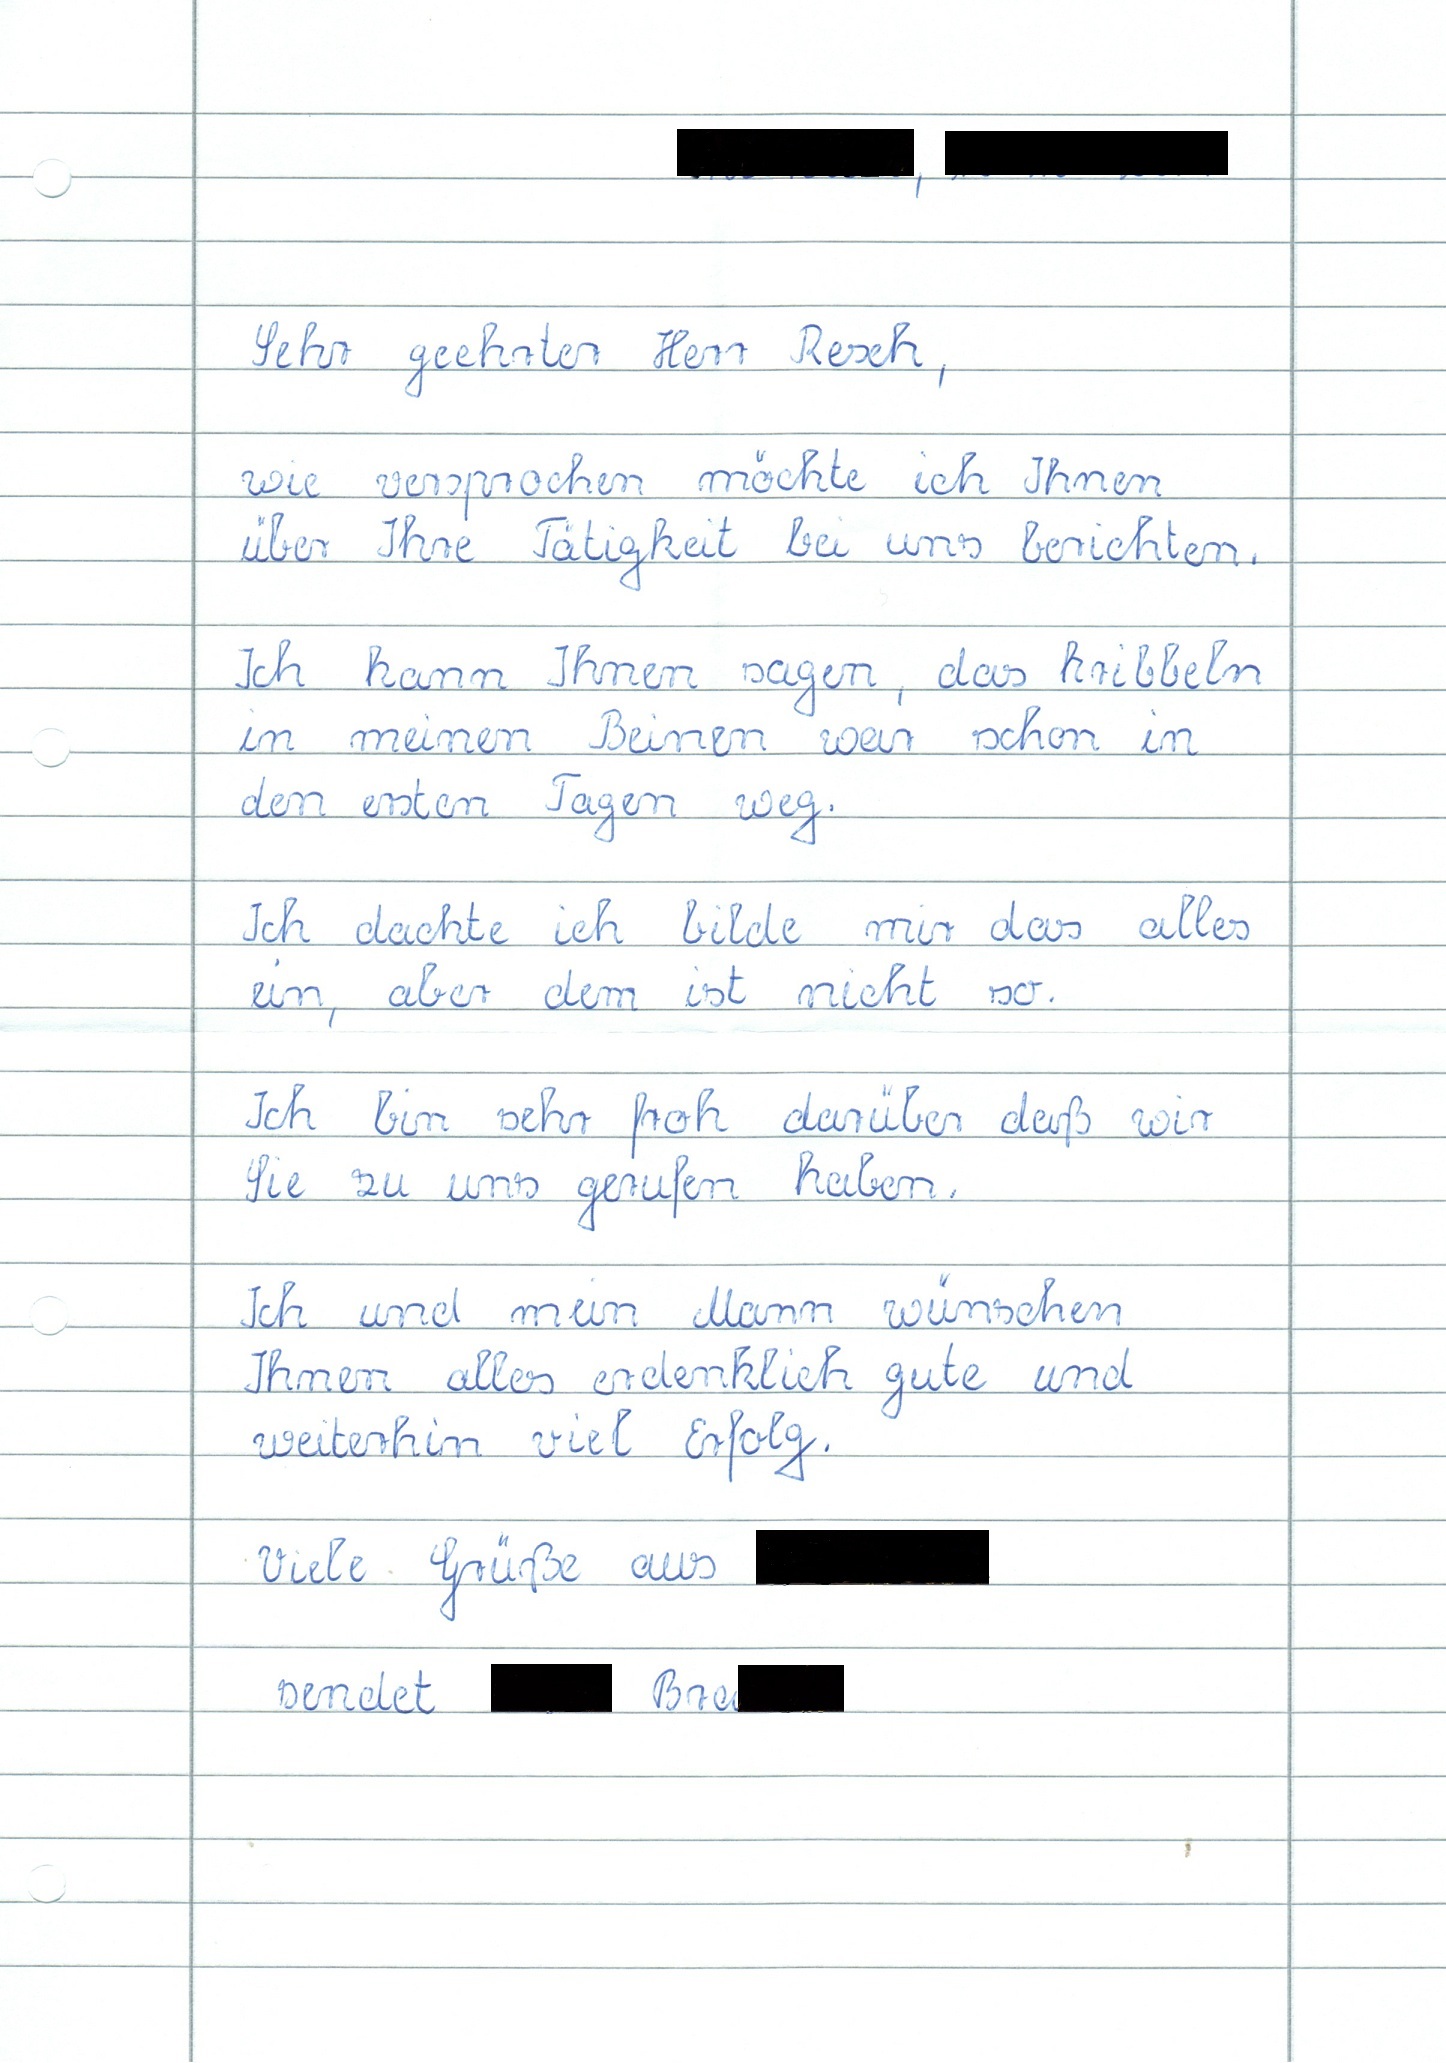 Sehr geehrter Herr Resch,
wie versprochen möchte ich Ihnen
über Ihre Tätigkeit bei uns berichten.
Ich kann Ihnen sagen, das kribbeln
in meinen Beinen war schon in
den ersten Tagen weg.
Ich dachte ich bilde mir das alles
ein, aber dem ist nicht so.
Ich bin sehr froh darüber daß wir
Sie zu uns gerufen haben.
Ich und mein Mann wünschen
Ihnen alles erdenklich gute und
weiterhin viel Erfolg.
Viele Grüße aus
sendet Bra